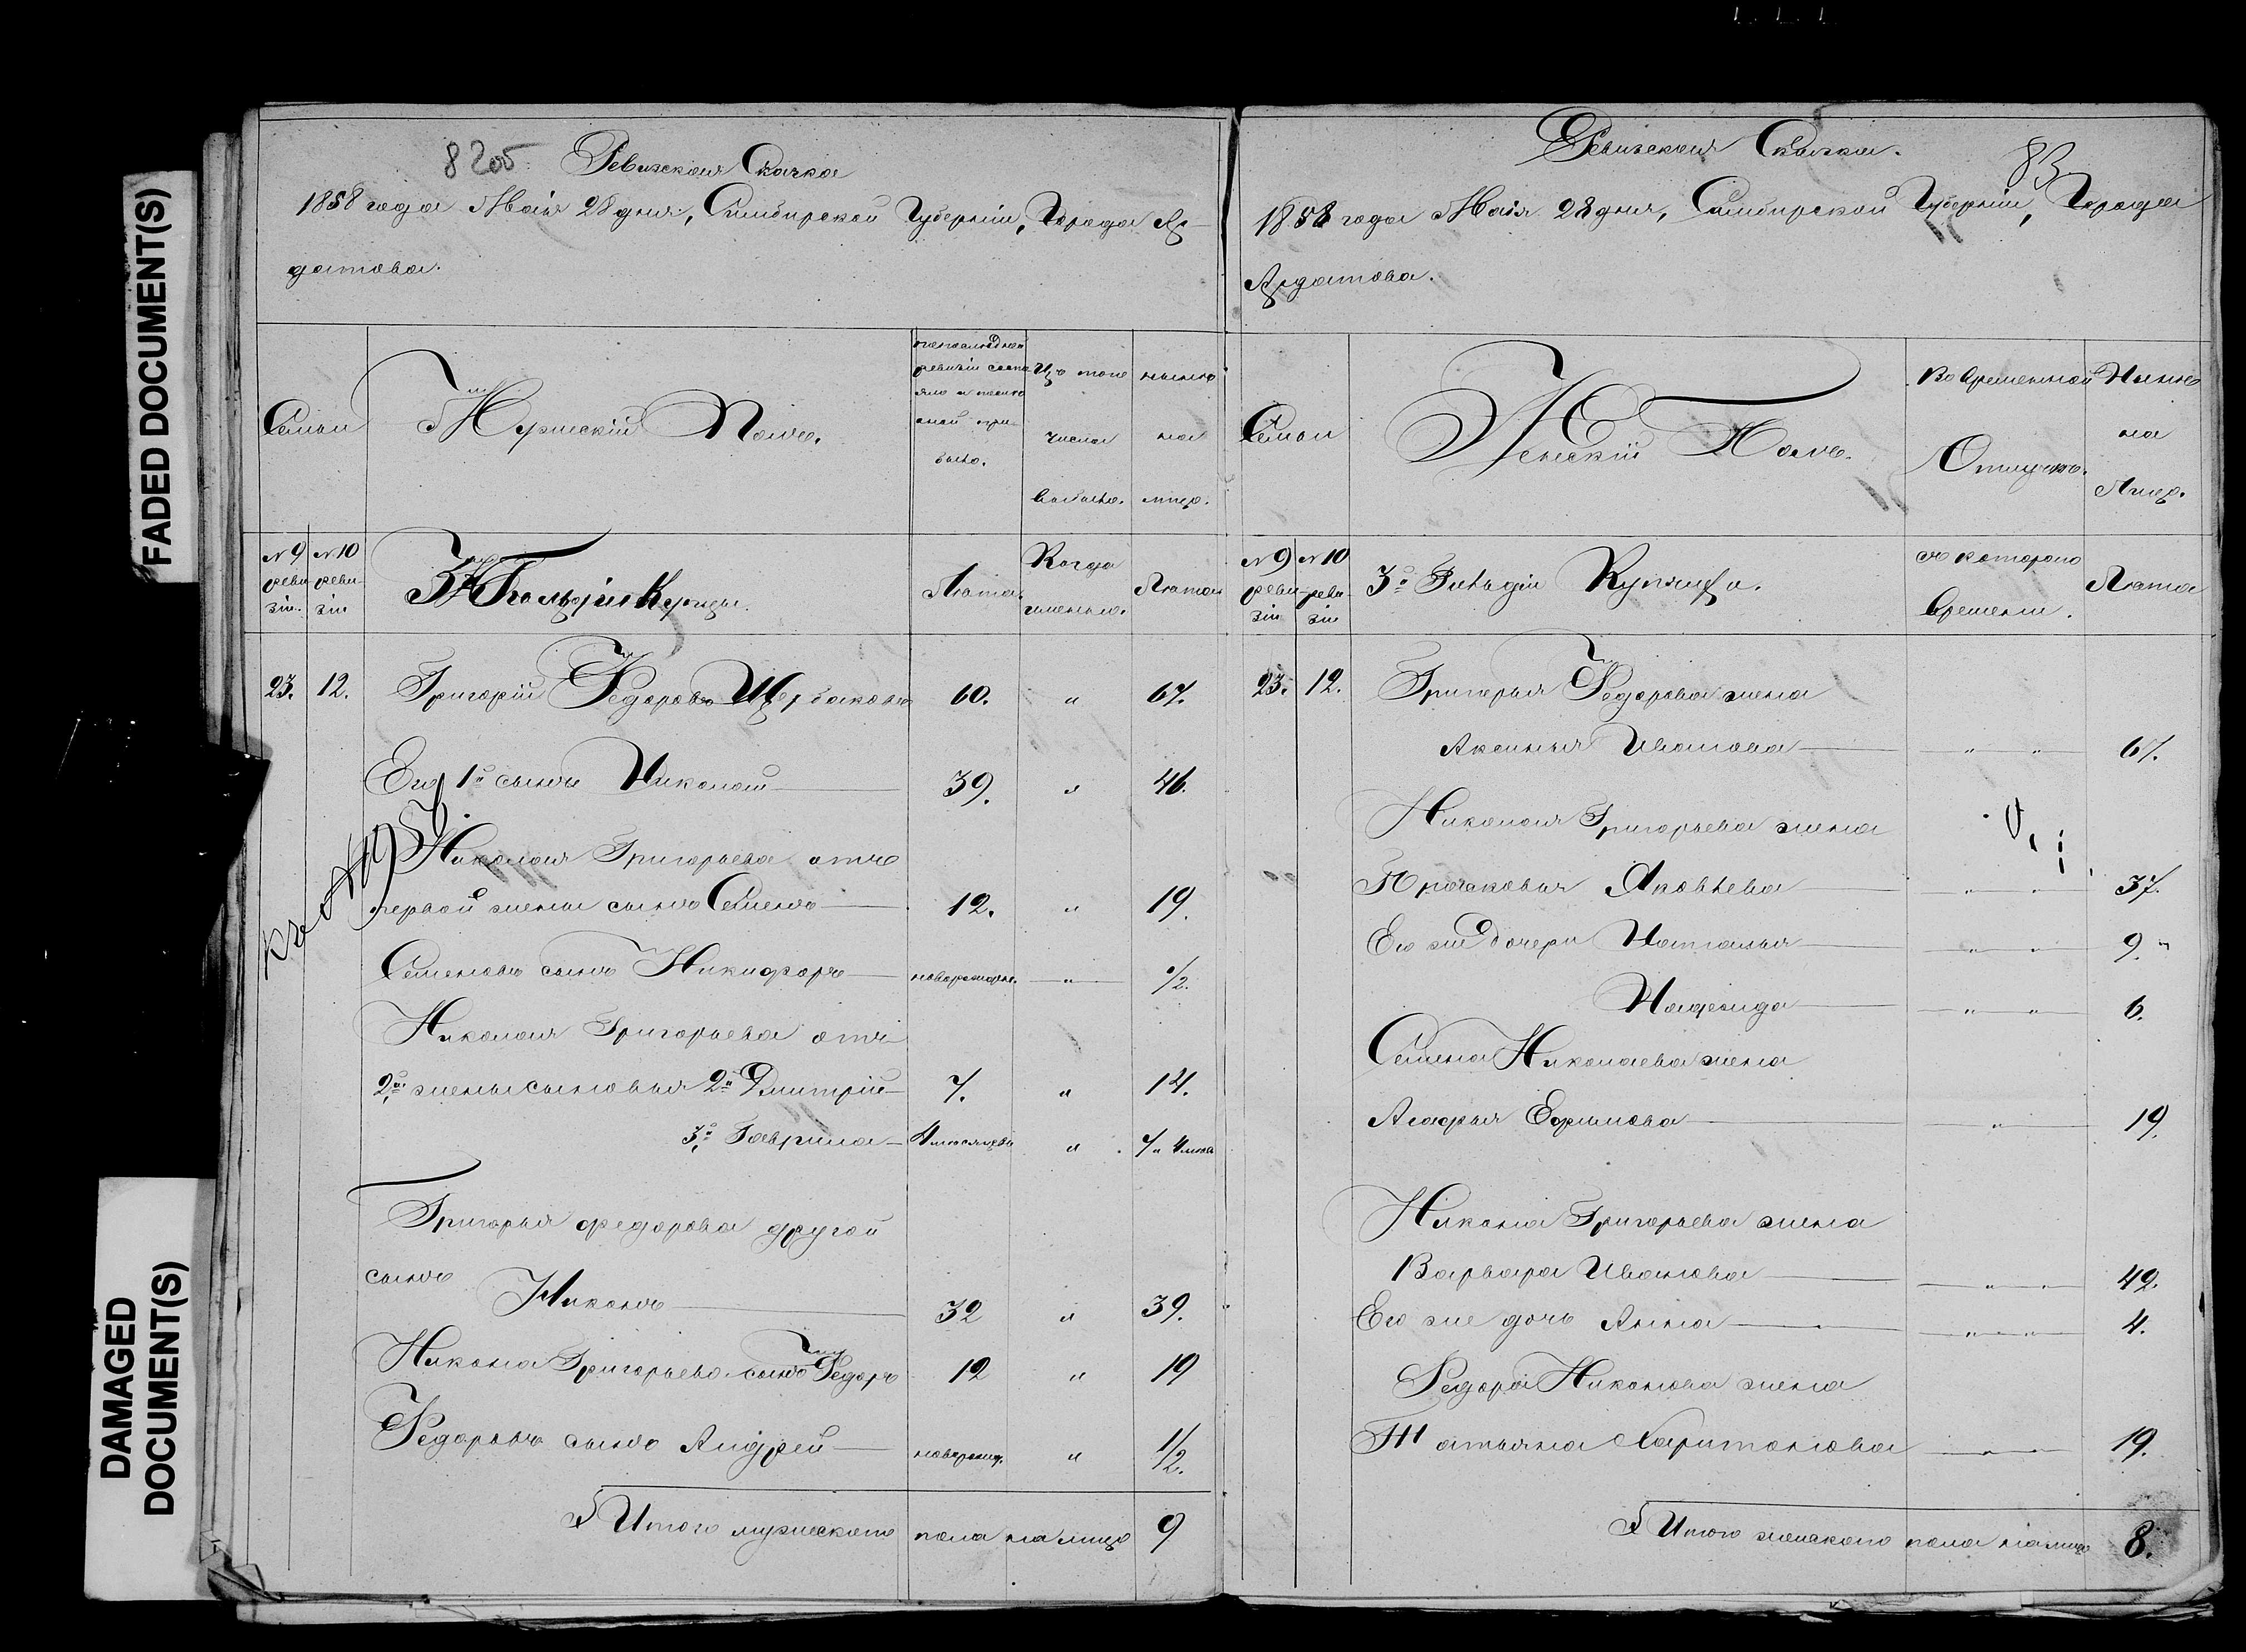 FADED DOCUMENT(S)
DAMAGED
DOCUMENT(S)
82об
Ревизская Сказка
1858 года Маія 28 дня, Симбирской Губерніи, Города Ар-
датова.
Семьи
Мужескій Полъ.
По последней
ревизіи состо
яло и после
оной при
было.
Изъ того
числа
выбыло.
ныне
на
лицо.
№ 9
реви
зіи.
№ 10
реви
зіи
3й Гильдіи Купцы.
Лета.
Когда
именно.
Лета
23. 12. Григорій Федоровъ Щербаковъ 60. " 67.
Его 1й сынъ Николай 39. " 46.
Николая Григорьева отъ
первой жены сынъ Семенъ 12. " 19.
Семеновъ сынъ Никифоръ новорожден. " 1/2.
Николая Григорьева отъ
2й жены сыновья 2й Дмитрій 7. " 14.
3й Гаврила 4 месяцевъ " 7 и 4 меся
Григорья Федорова другой
сынъ
Никонъ 32 " 39.
Никона Григорьева сынъ Федоръ 12 " 19
Федоровъ сынъ Андрей новорожд. " 1/2.
Итого мужеского пола на лицо 9
Ревизская Сказка.
83
1858 года Маія 28 дня, Симбирской Губерніи, Города
Ардатова.
Семьи
Женскій Полъ.
Во временной
Отлучке.
Ныне
на
Лицо.
№ 9
реви
зіи
№ 10
реви
зіи
3й Гильдіи Купчихи.
съ котораго
времени.
Лета
23. 12. Григорья Федорова жена
Аксинья Иванова " " 67.
Николая Григорьева жена
Прасковья Яковлева " " 37.
Его же дочери Наталья " " 9.
Надежда " " 6.
Семена Николаева жена
Агафья Ефимова " 19.
Никона Григорьева жена
Варвара Иванова " " 42.
Его же дочь Анна " " 4.
Федора Никонова жена
Татьяна Харитонова " 19.
Итого женского пола на лицо 8.